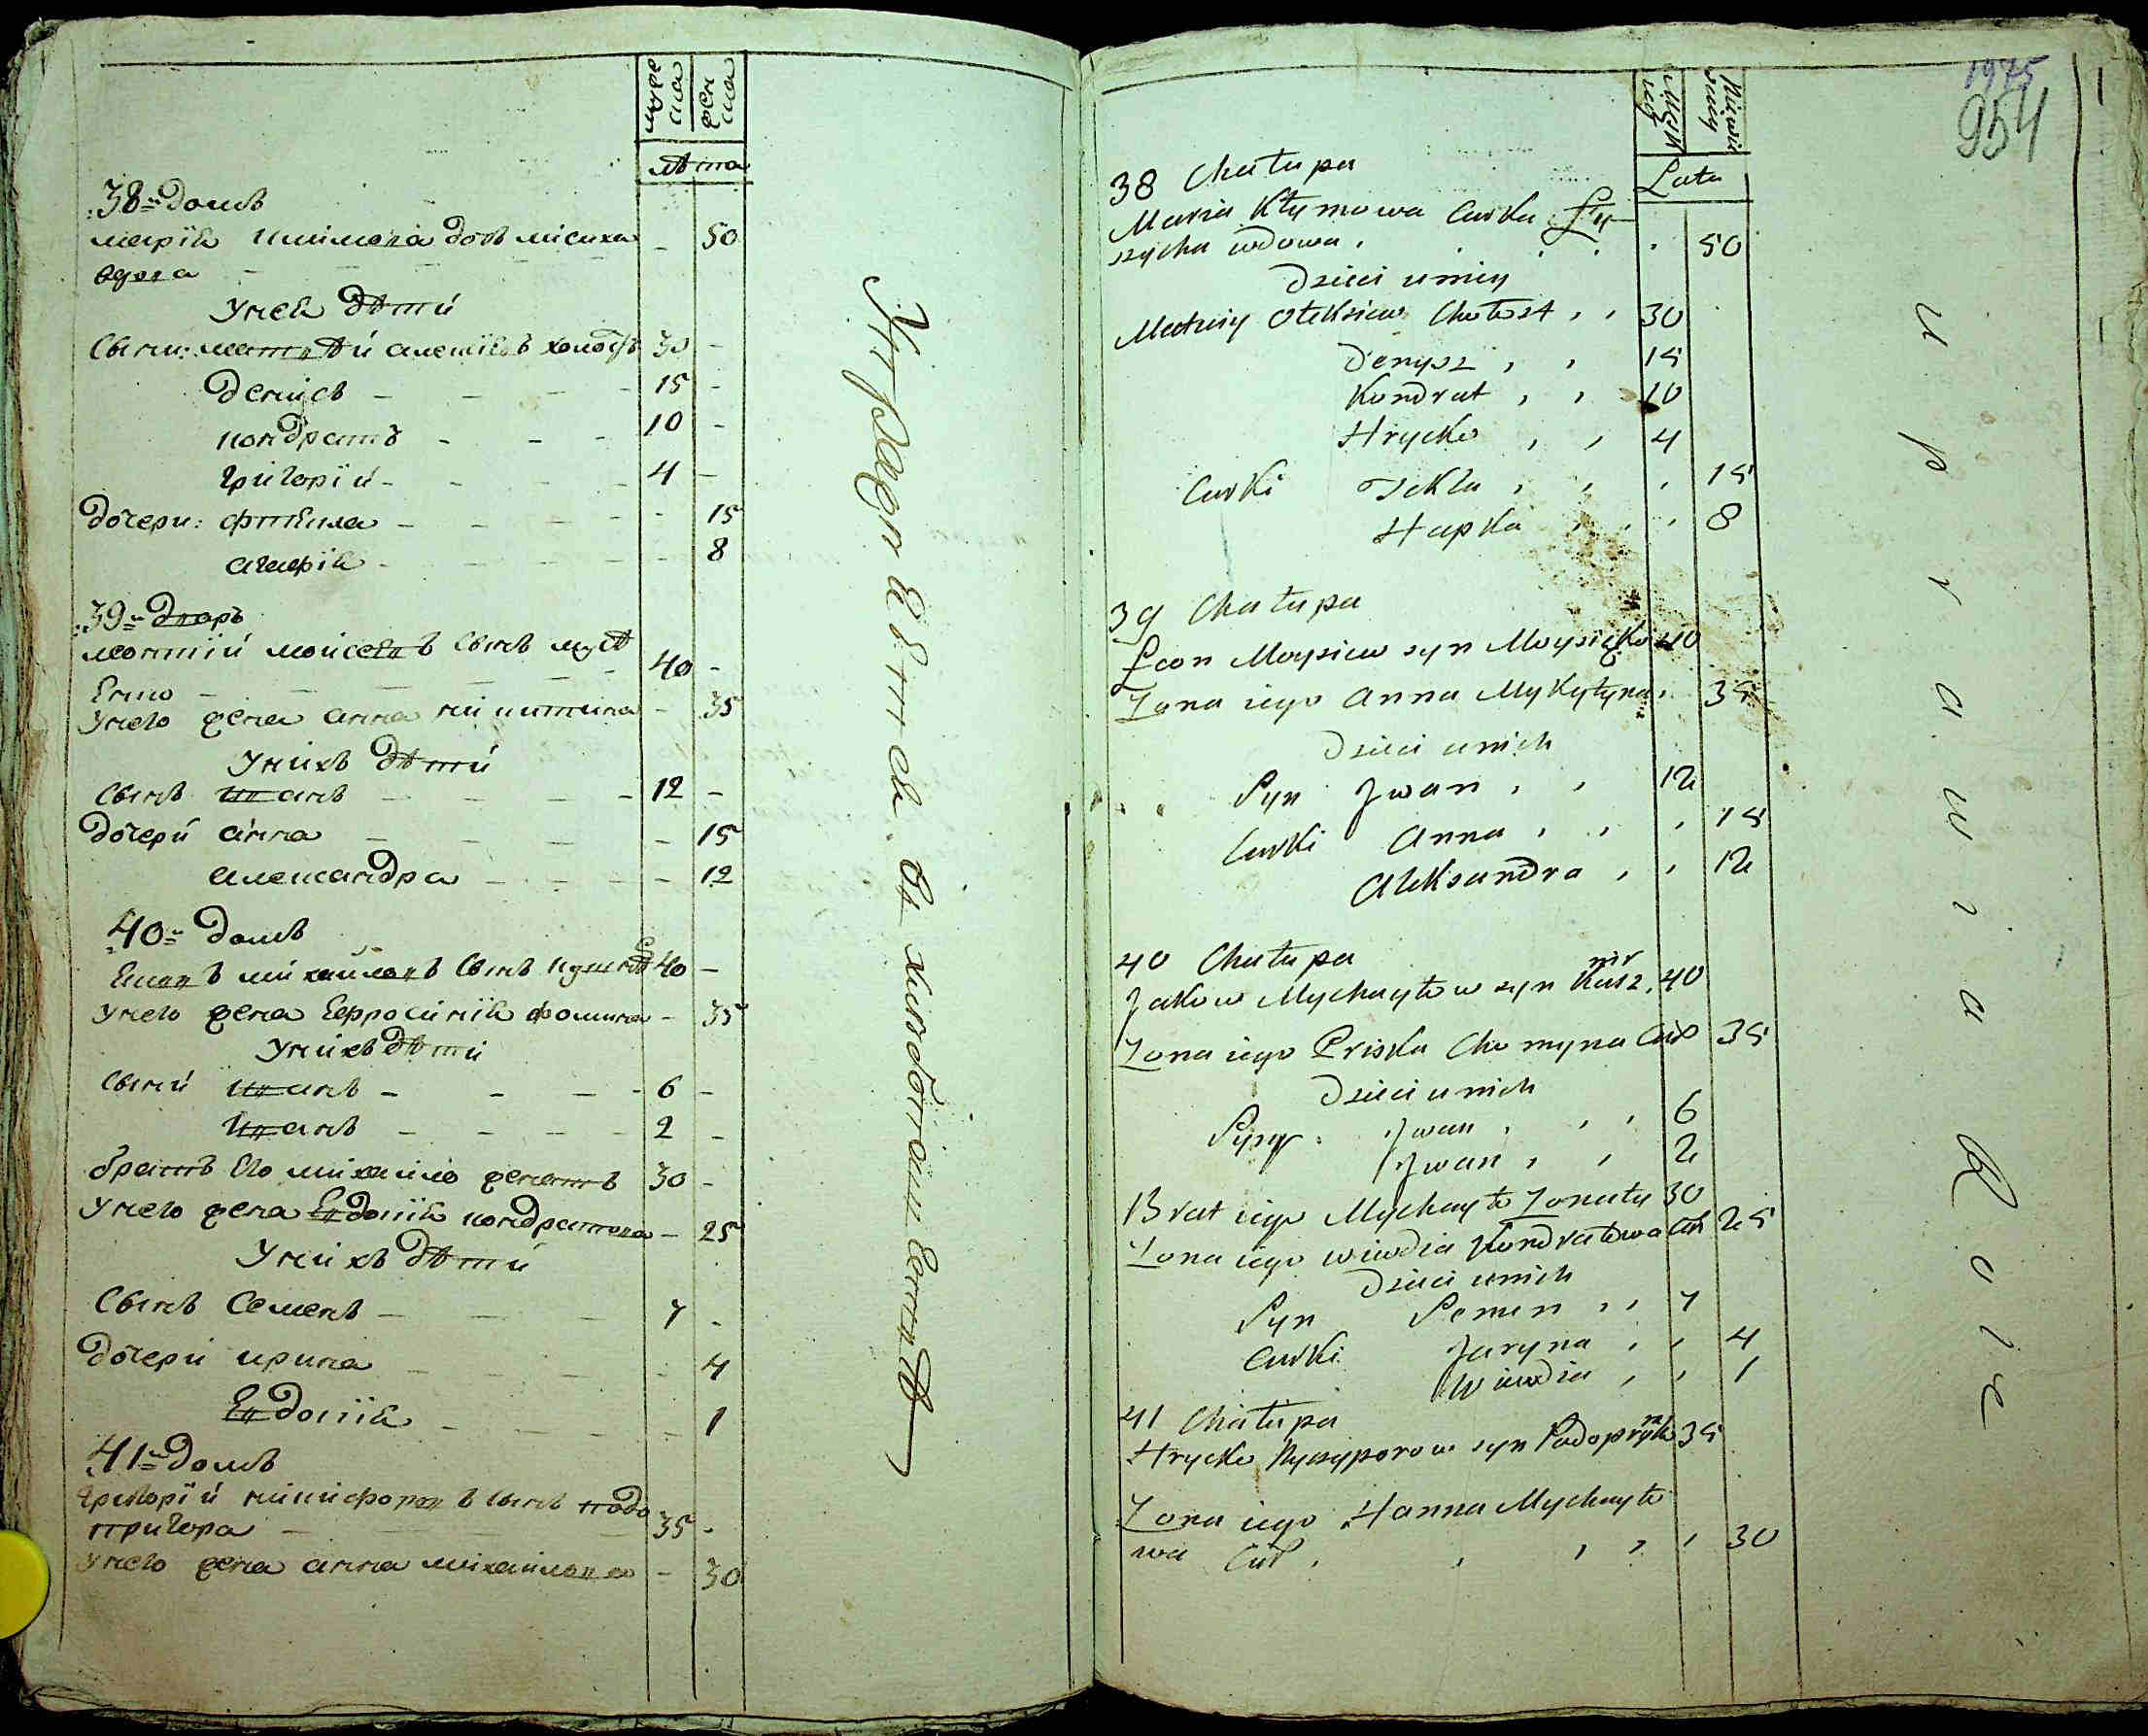 мужеска
женска
лѣта
38й Домъ
марія климова дочъ лисиха - 50
вдова
У нея дѣти
Сыни: матвѣй алексіевъ холостъ 30 -
Денисъ - 15 -
кондратъ - 10 -
григорій - 4 -
Дочери: фтекла - 15
агафія - 8
39й Дворъ
леонтій мойсеевъ сынъ муси
енко - 40 -
У него жена анна никитина - 35
У нихъ дѣти
Сынъ иванъ - 12 -
Дочери анна - 15
александра - 12
40й Домъ
Яковъ михайловъ сынъ кушнѣр 40 -
У него жена Ефросинія фомина - 35
У нихъ дѣти
Сыни иванъ - 6 -
иванъ - 2 -
братъ его михайло женатъ 30 -
У него жена Евдокія кондратова - 25
У нихъ дѣти
Сынъ Семенъ - 7 -
Дочери ирина - 4
Евдокія - 1
41й Домъ
григорій никифоровъ сынъ подо
пригора - 35 -
У него жена анна михайлова - 30
Упражняется въ хлебопашествѣ
1975
954
Męsk
iey
Niewie
sciey
Lata
38 Chałupa
Maria Kłymowa Curka Ły
szycha wdowa 50
Dzieci u niey
Matwiy Oleksiew Chołost 30
Denysz 15
Kondrat 10
Hrycko 4
Curki Tekla 15
Hapka 8
39 Chałupa
Leon Moysiew syn Moysieńko 40
Zona iego Anna Mykytyna 35
Dzieci u nich
Syn Jwan 12
Curki Anna 15
Aleksandra 12
40 Chałupa
Jakow Mychayłow syn Kusznir 40
Zona iego Priska Chomyna Cur 35
Dzieci u nich
Syny Jwan 6
Jwan 2
Brat iego Mychayło Zonaty 30
Zona iego Wiwdia Kondratowa Cur 25
Dzieci u nich
Syn Semen 7
Curki Jaryna 4
Wiwdia 1
41 Chałupa
Hrycko Nyczyporow syn Podopryhora 35
Zona iego Hanna Mychayło
wa Cur 30
uprawia Role